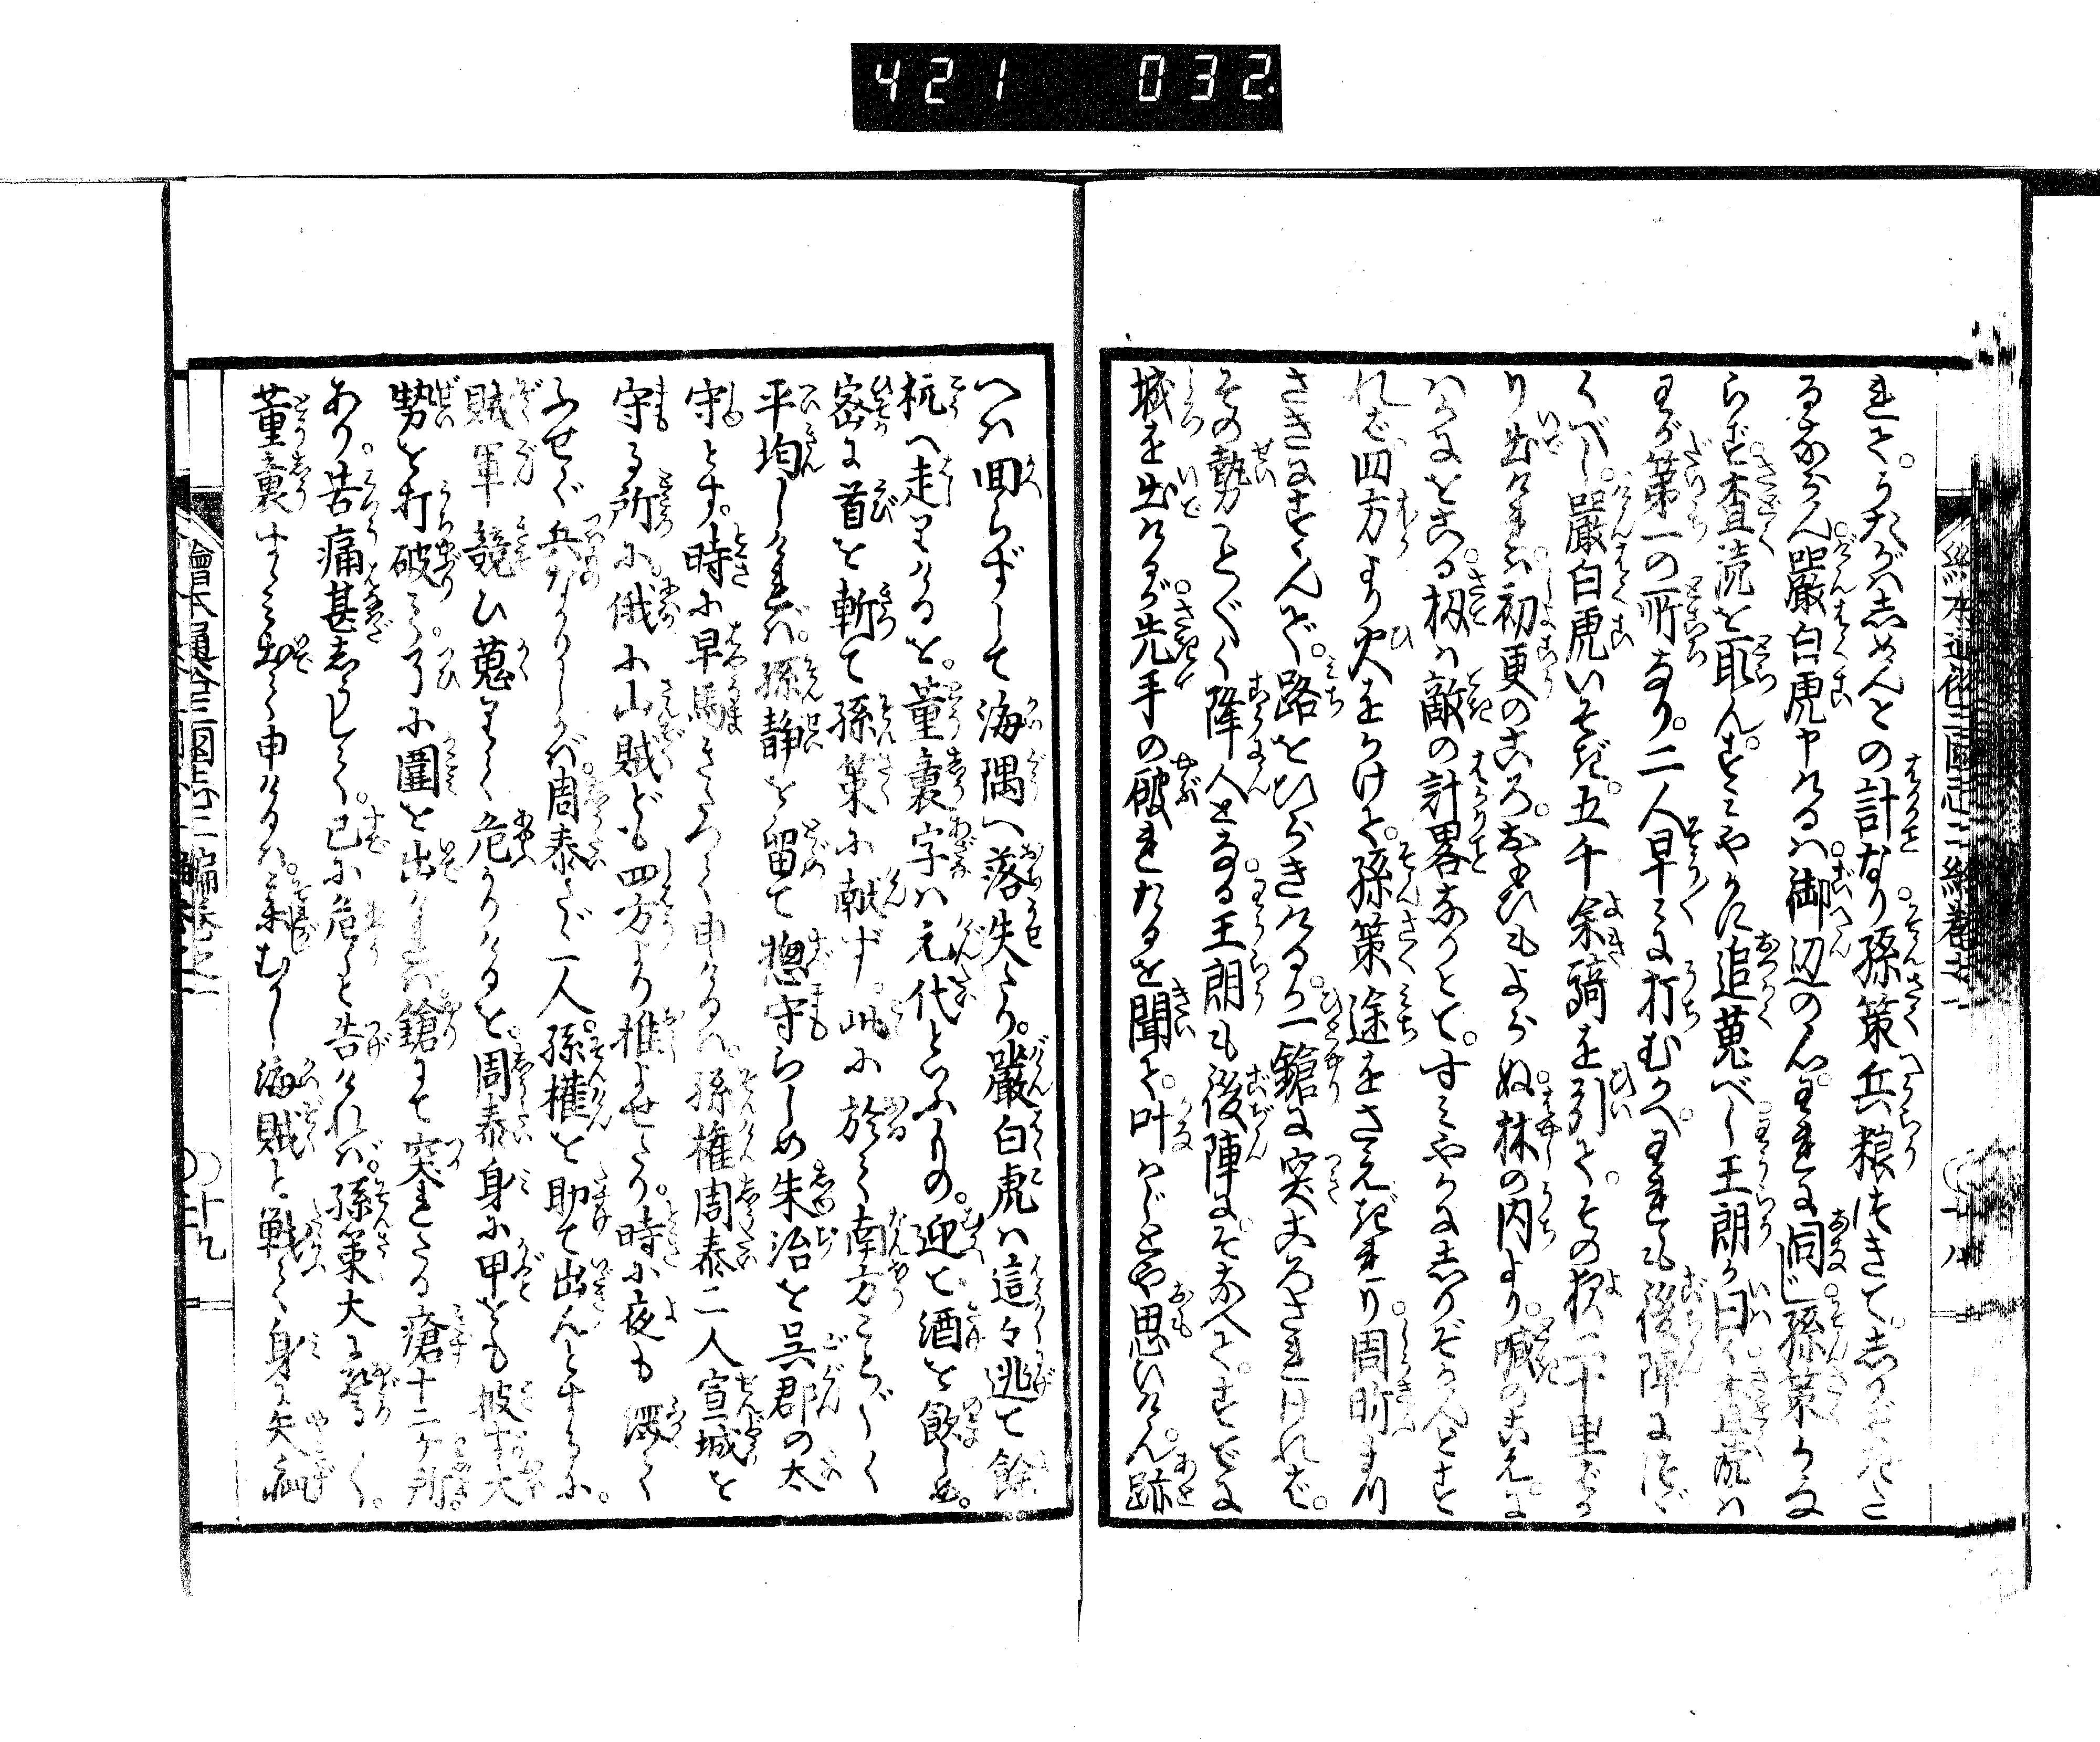 421 032.
絵本通俗三国志二編巻之一 ○十八
れをうたがハしめんとの計なり孫策兵粮つきてしりぞきたと
るならん嚴白虎申けるハ御辺の心われに同じ孫策かな
らず査涜を取んすミやかに追蒐べし王朗が曰く査涜ハ
わが第一の所なり二人早々に打むかへわれも後陣につゞ
くべし嚴白虎いそぎ五千余騎を引てその夜二十里ばか
り出ければ初更のころおひもよらぬ林の内より喊のこゑに
ハかにをこる扨ハ敵の計畧なりとてすミやかにしりぞかんとす
れば四方より火をかけて孫策途をさえぎれり周昕まつ
さきにすゝんで路をひらきけるが一鎗に突ころされければ
その勢ことごとく降人となる王朗も後陣にそなへてすでに
城を出けるが先手の破れたるを聞て叶ハじとや思いけん跡
へハ回らずして海隅へ落失たり嚴白虎ハ這々逃て餘
杭へ走りけるを董襲字ハ元代といふもの迎て酒を飲しめ
密に首を斬て孫策に献ず此に於て南方ことごとく
平均しければ孫静を留て惣守らしめ朱治を呉郡の太
守とす時に早馬きたつて申けるハ孫権周泰二人宣城を
守る所に俄に山賊ども四方より推よせたり時に夜も深て
ふせぐ兵なかりしが周泰たゞ一人孫権を助て出んとするに
賊軍競ひ蒐りて危かりけるを周泰身に甲をも披ず大
勢を打破ミ了に圍を出けれバ鎗にて突れたる瘡十二ケ所
あり苦痛甚しうして已に危しと告けれバ孫策大に驚く
董襲すゝミ出て申けるハ某むかし海賊と戦て身に矢疵
繪本通俗三國志二編巻之一 ○十九